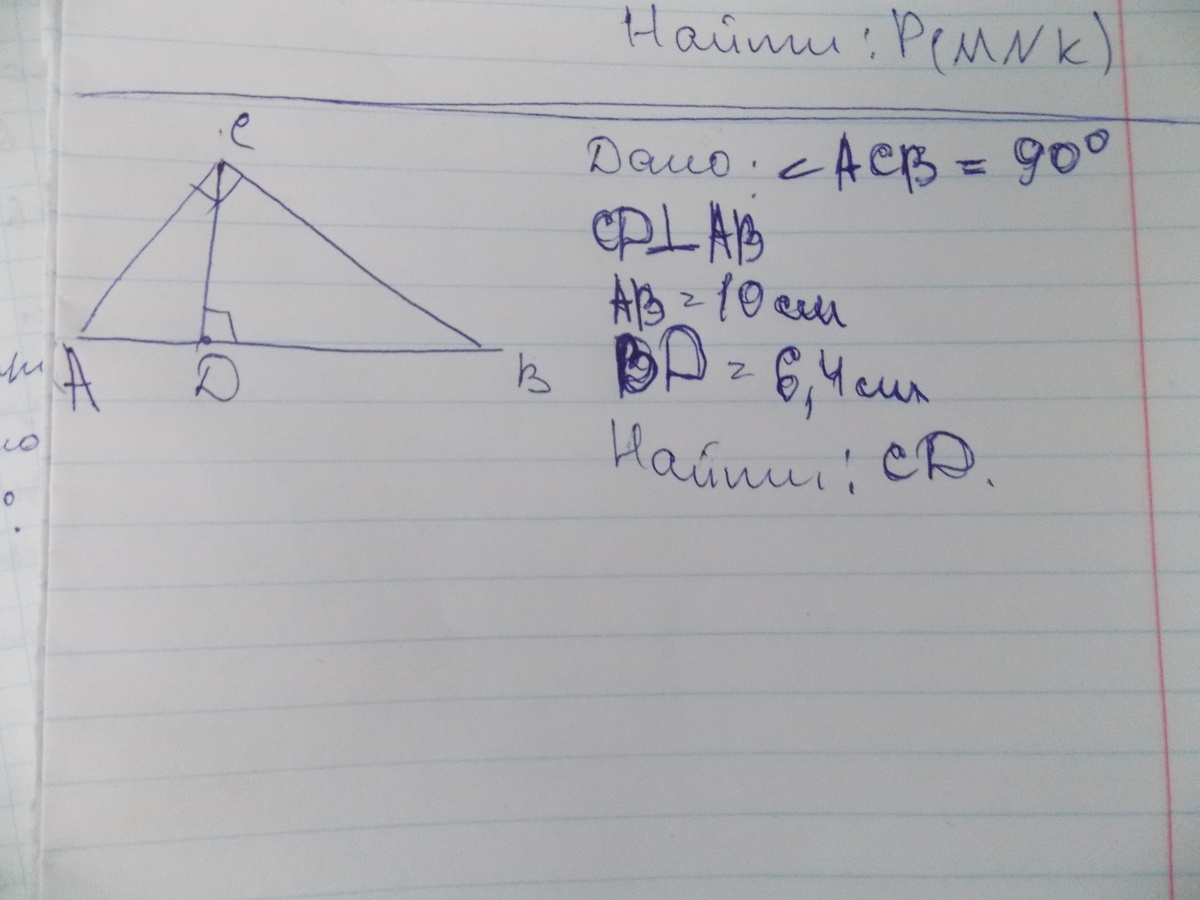 Найти: P(MNK)
C
Дано: <ACB = 90°
CD⊥AB
AB = 10 см
A D B
BD = 6,4 см
Найти: CD.